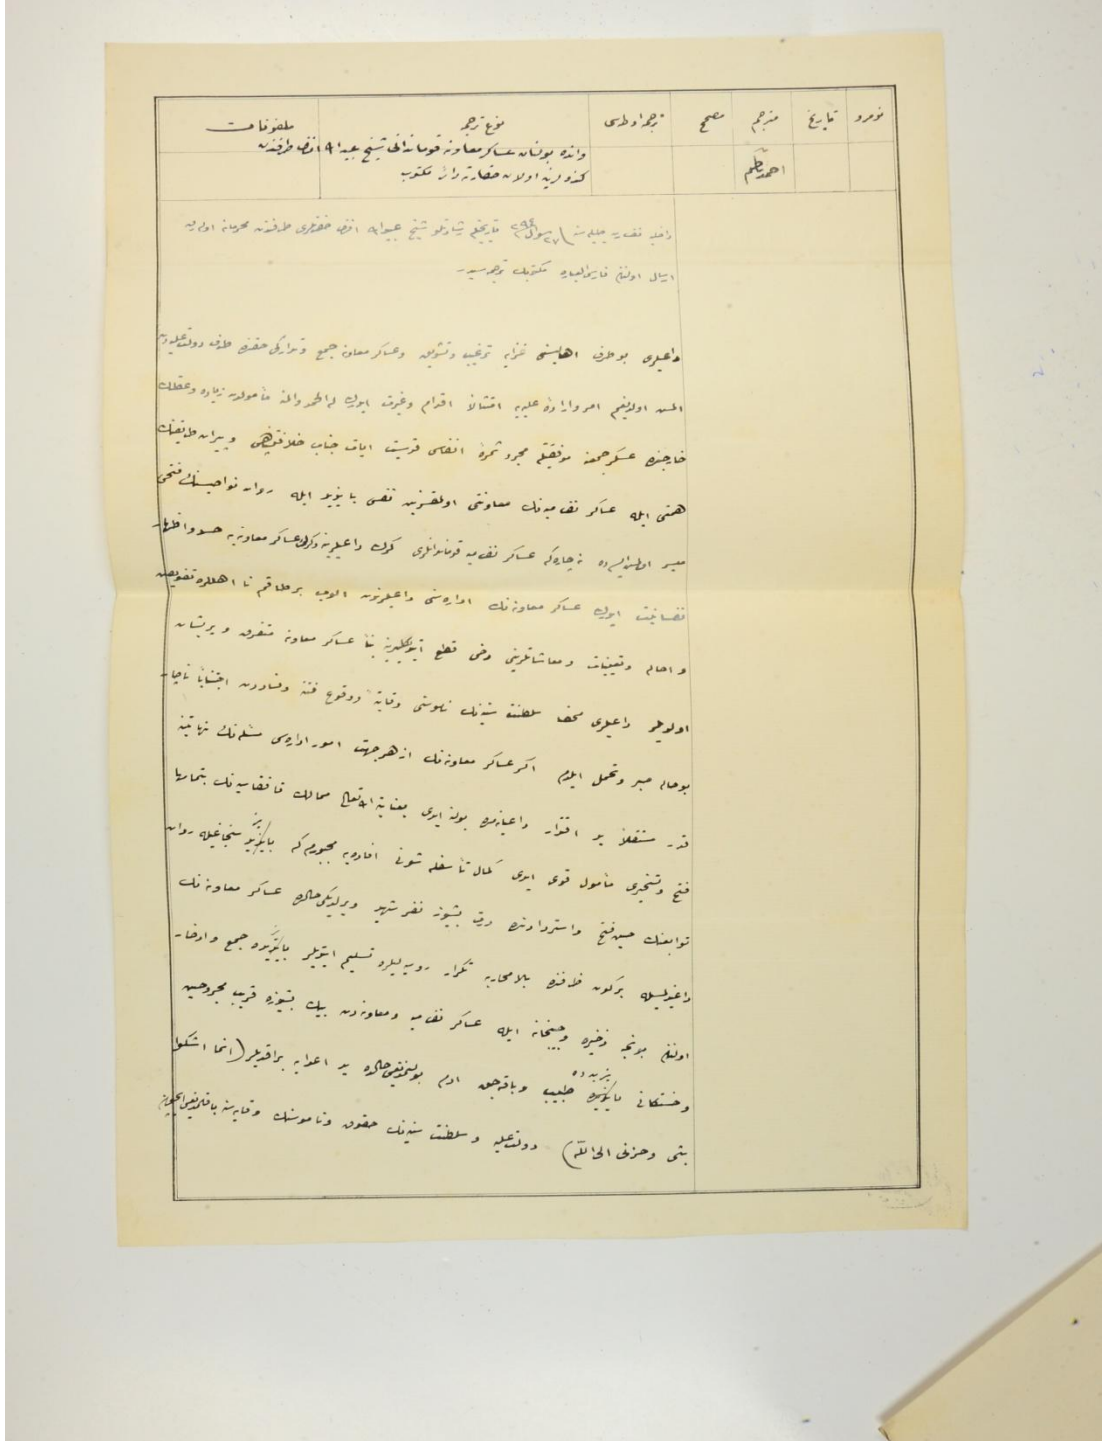 نومرو تاريخ مترجم مصحح ترجمه اوطه‌سى نوع ترجمه ملفوفات
وانده بولنان عساكر معاونه قوماندانى شيخ عبيد الله افندى طرفندن
كندولرينه اولان مكتوب
احمد ناظم
داخليه نظارت جليله‌سنه ٢٧ شوال ٢٩٤ تاريخيله شيخ عبيد الله افندى حضرتلرى طرفندن محرمانه اوله‌رق
ارسال اولنان فارسى العباره مكتوبك ترجمه‌سيدر
داعيلرى بو طرف اهاليسنى غزايه ترغيب وتشويق وعساكر معاونه جمع وتداركى حقنده طرف دولت عليه‌دن
اولديغم امر واراده عليه‌يه امتثالاً اقدام وغيرت ايدرك لله الحمد والمنه مأمولدن زياده وعقلك
خارجنده عسكر جمعنه موفقيتم مجرد ثمرۀ انفاس قدسيت آيات جناب خلافتپناهى وپيران طريقتك
همتى ايله عساكر نظاميه‌نك معاونتى اولمقسزين نفس بايزيد ايله روان نواحيسنك فتحى
ميسر نه چاره كه عساكر نظاميه قوماندانلرى كرك داعيلرينه وكرك عساكر معاونه‌يه حسد واظهار
نفسانيت ايدرك عساكر معاونه‌نك اداره‌سنى داعيلرندن الوب بر طاقم نا اهللره تفويض
واحاله وتعيينات ومعاشاتلرينى دخى قطع ايتديكلرينه بناءً عساكر معاونه متفرق وپريشان
اولديلر داعيلرى محضا سلطنت سنيه‌نك ناموسنى وقايةً ووقوع فتنه وفساددن اجتناباً ناچار
بو حاله صبر وتحمل ايلدم اكر عساكر معاونه‌نك از هر جهت امور اداره‌سى مسئله‌نك نهايتنه
قدر مستقلاً يد اقتدار داعيانه‌مده بولنه ايدى بعناية الله تعالى ممالك قافقاسيه‌نك بتمامها
فتح وتسخيرى مأمول قوى ايدى كمال تأسفله شونى افاده‌يه مجبورم كه بايزيد سنجاغيله روان
توابعنك حين فتح واستردادنده درت بشيوز نفر شهيد ويرلديكى حالده عساكر معاونه‌نك
داغيلمسيله بر كون ظرفنده بلا محاربه تكرار روسيه‌ليلره تسليم ايتديلر بايزيدده جمع وادخار
اولنان بونجه ذخيره وجبخانه ايله عساكر نظاميه ومعاونه‌دن بيك بشيوزه قريب مجروحين
وخستكانى بايزيدده طبيب وباقه‌جق آدم بولنمديغى حالده يد اعدايه براقديلر (انما اشكوا
بثى وحزنى الى الله) دولت عليه وسلطنت سنيه‌نك حقوق وناموسنك وقايه‌سنه